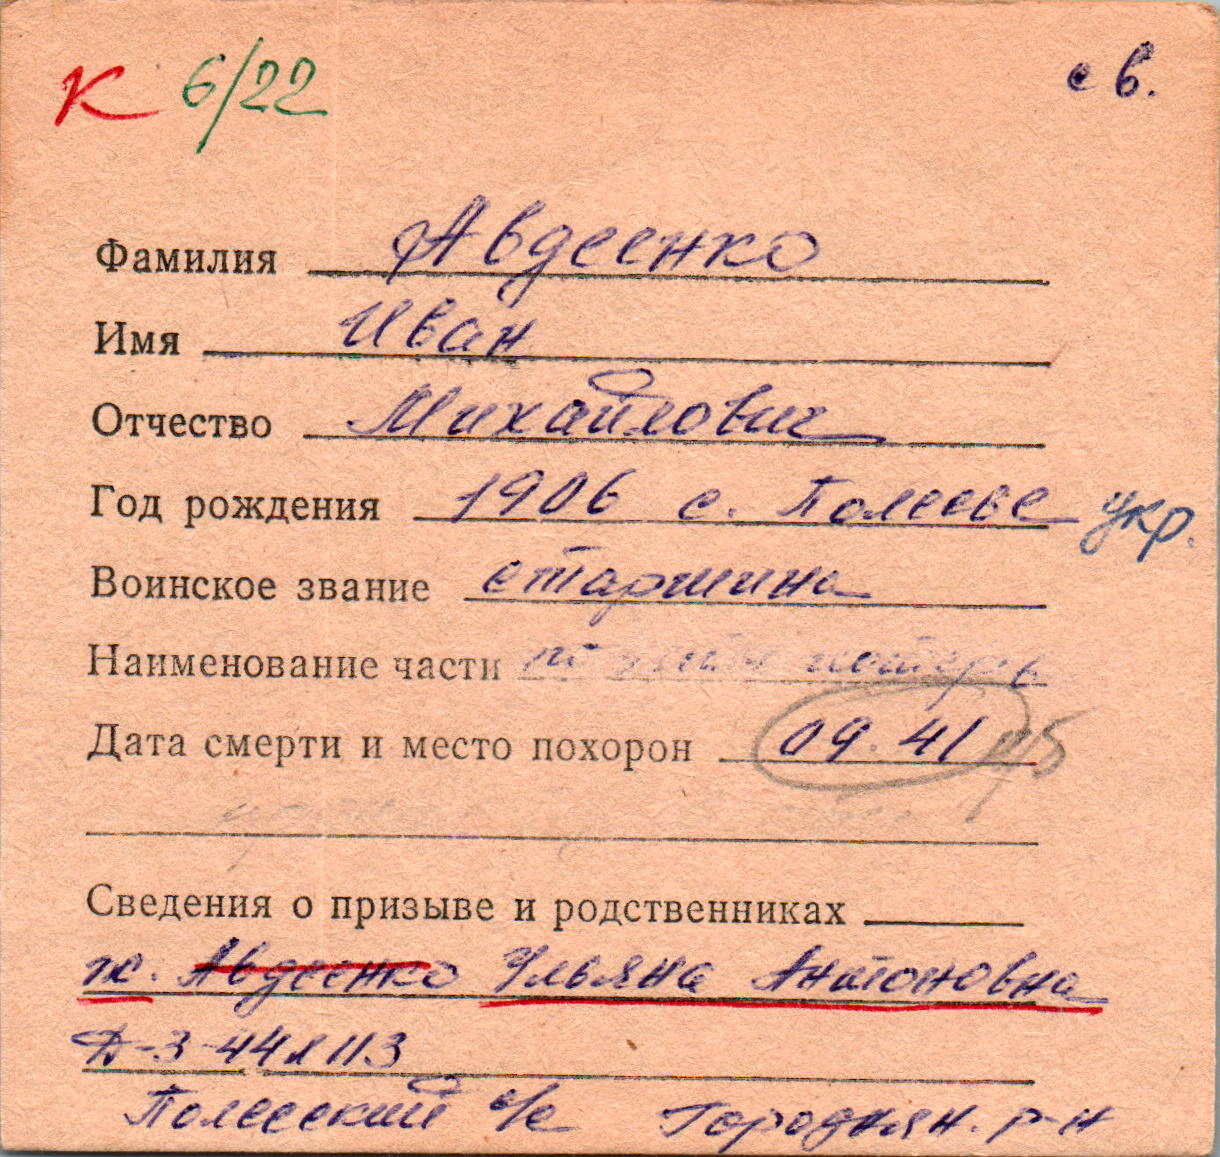 К 6/22
с в.
Фамилия Авдеенко
Имя Иван
Отчество Михайлович
Год рождения 1906 с. Полесье укр.
Воинское звание старшина
Наименование части
Дата смерти и место похорон 09.41
Сведения о призыве и родственниках
ж. Авдеенко Ульяна Антоновна
Д-3-44 л 113
Полесский с/с Городнян. р-н